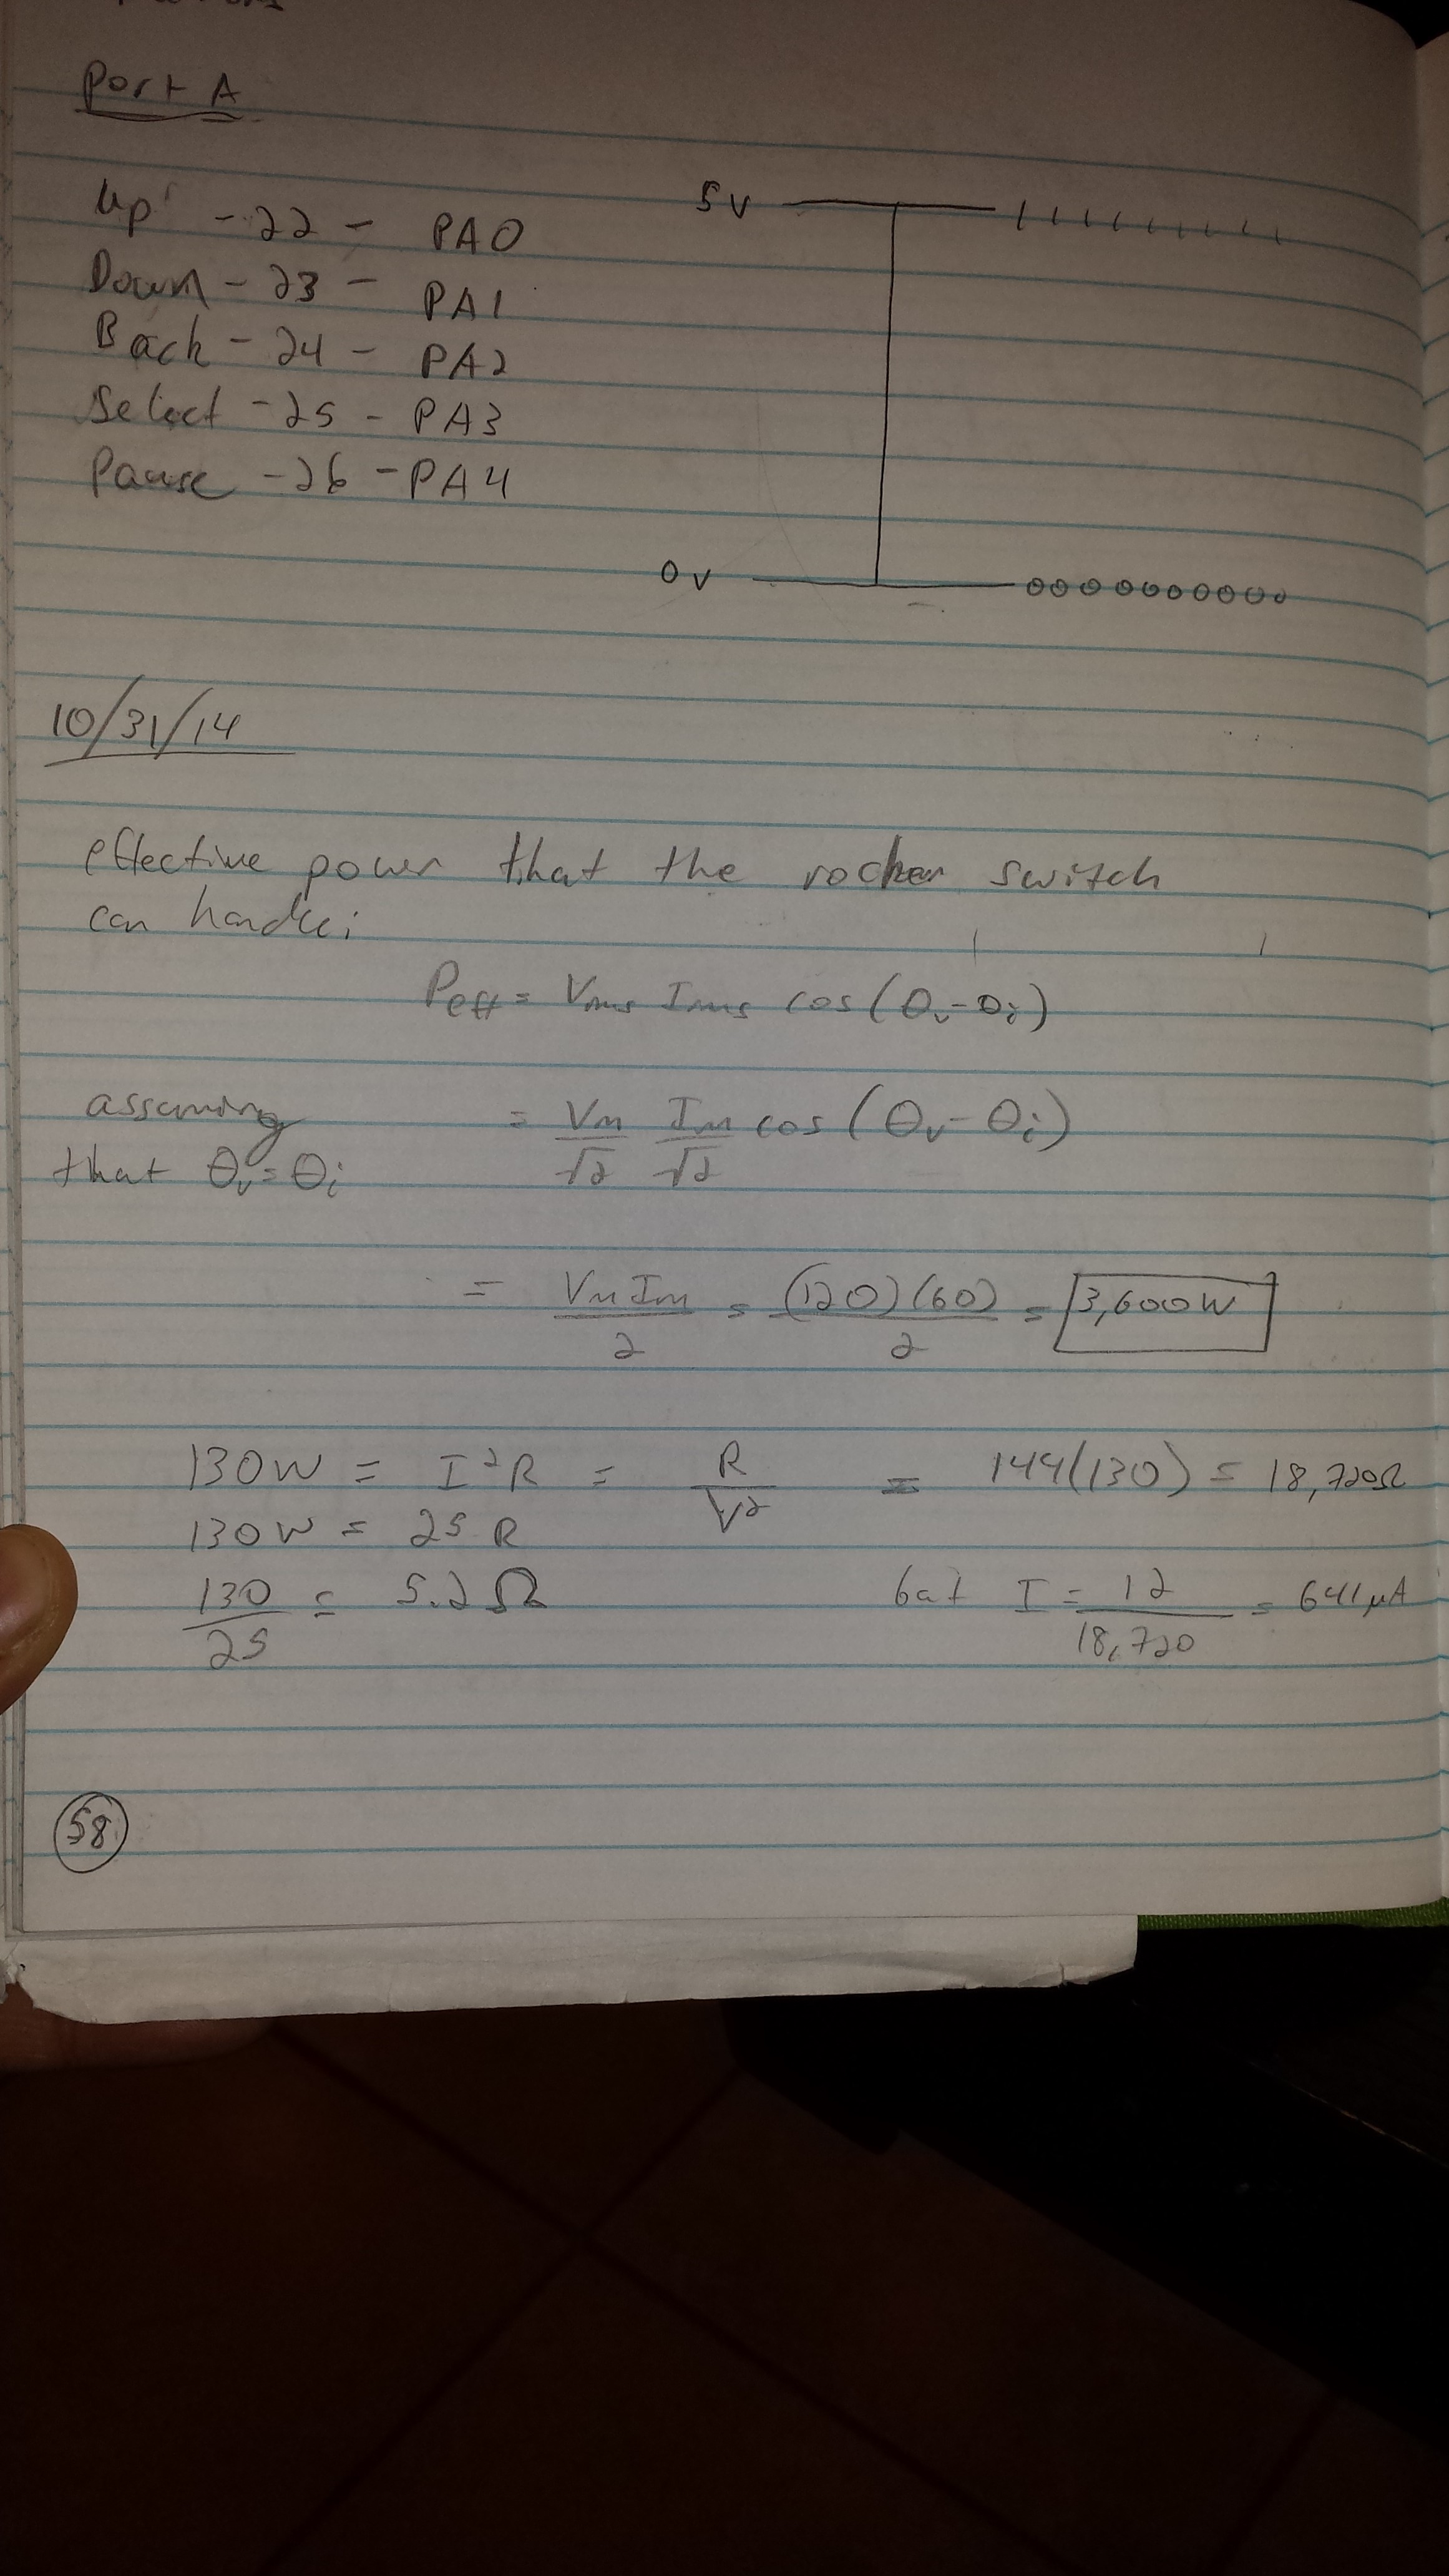 Port A
Up - 22 - PA0
Down - 23 - PA1
Back - 24 - PA2
Select - 25 - PA3
Pause - 26 - PA4
5V | | | | | | | | | |
0V 0000000000
10/31/14
effective power that the rocker switch
can handle;
Peff = Vrms Irms cos(θv-θi)
assuming
that θv=θi
= Vm/√2 Im/√2 cos(θv-θi)
= VmIm/2 = (120)(60)/2 = 3,600W
130W = I²R = R/V² = 144(130) = 18,720Ω
130W = 25 R
130/25 = 5.2Ω
bat I = 12/18,720 = 641µA
58